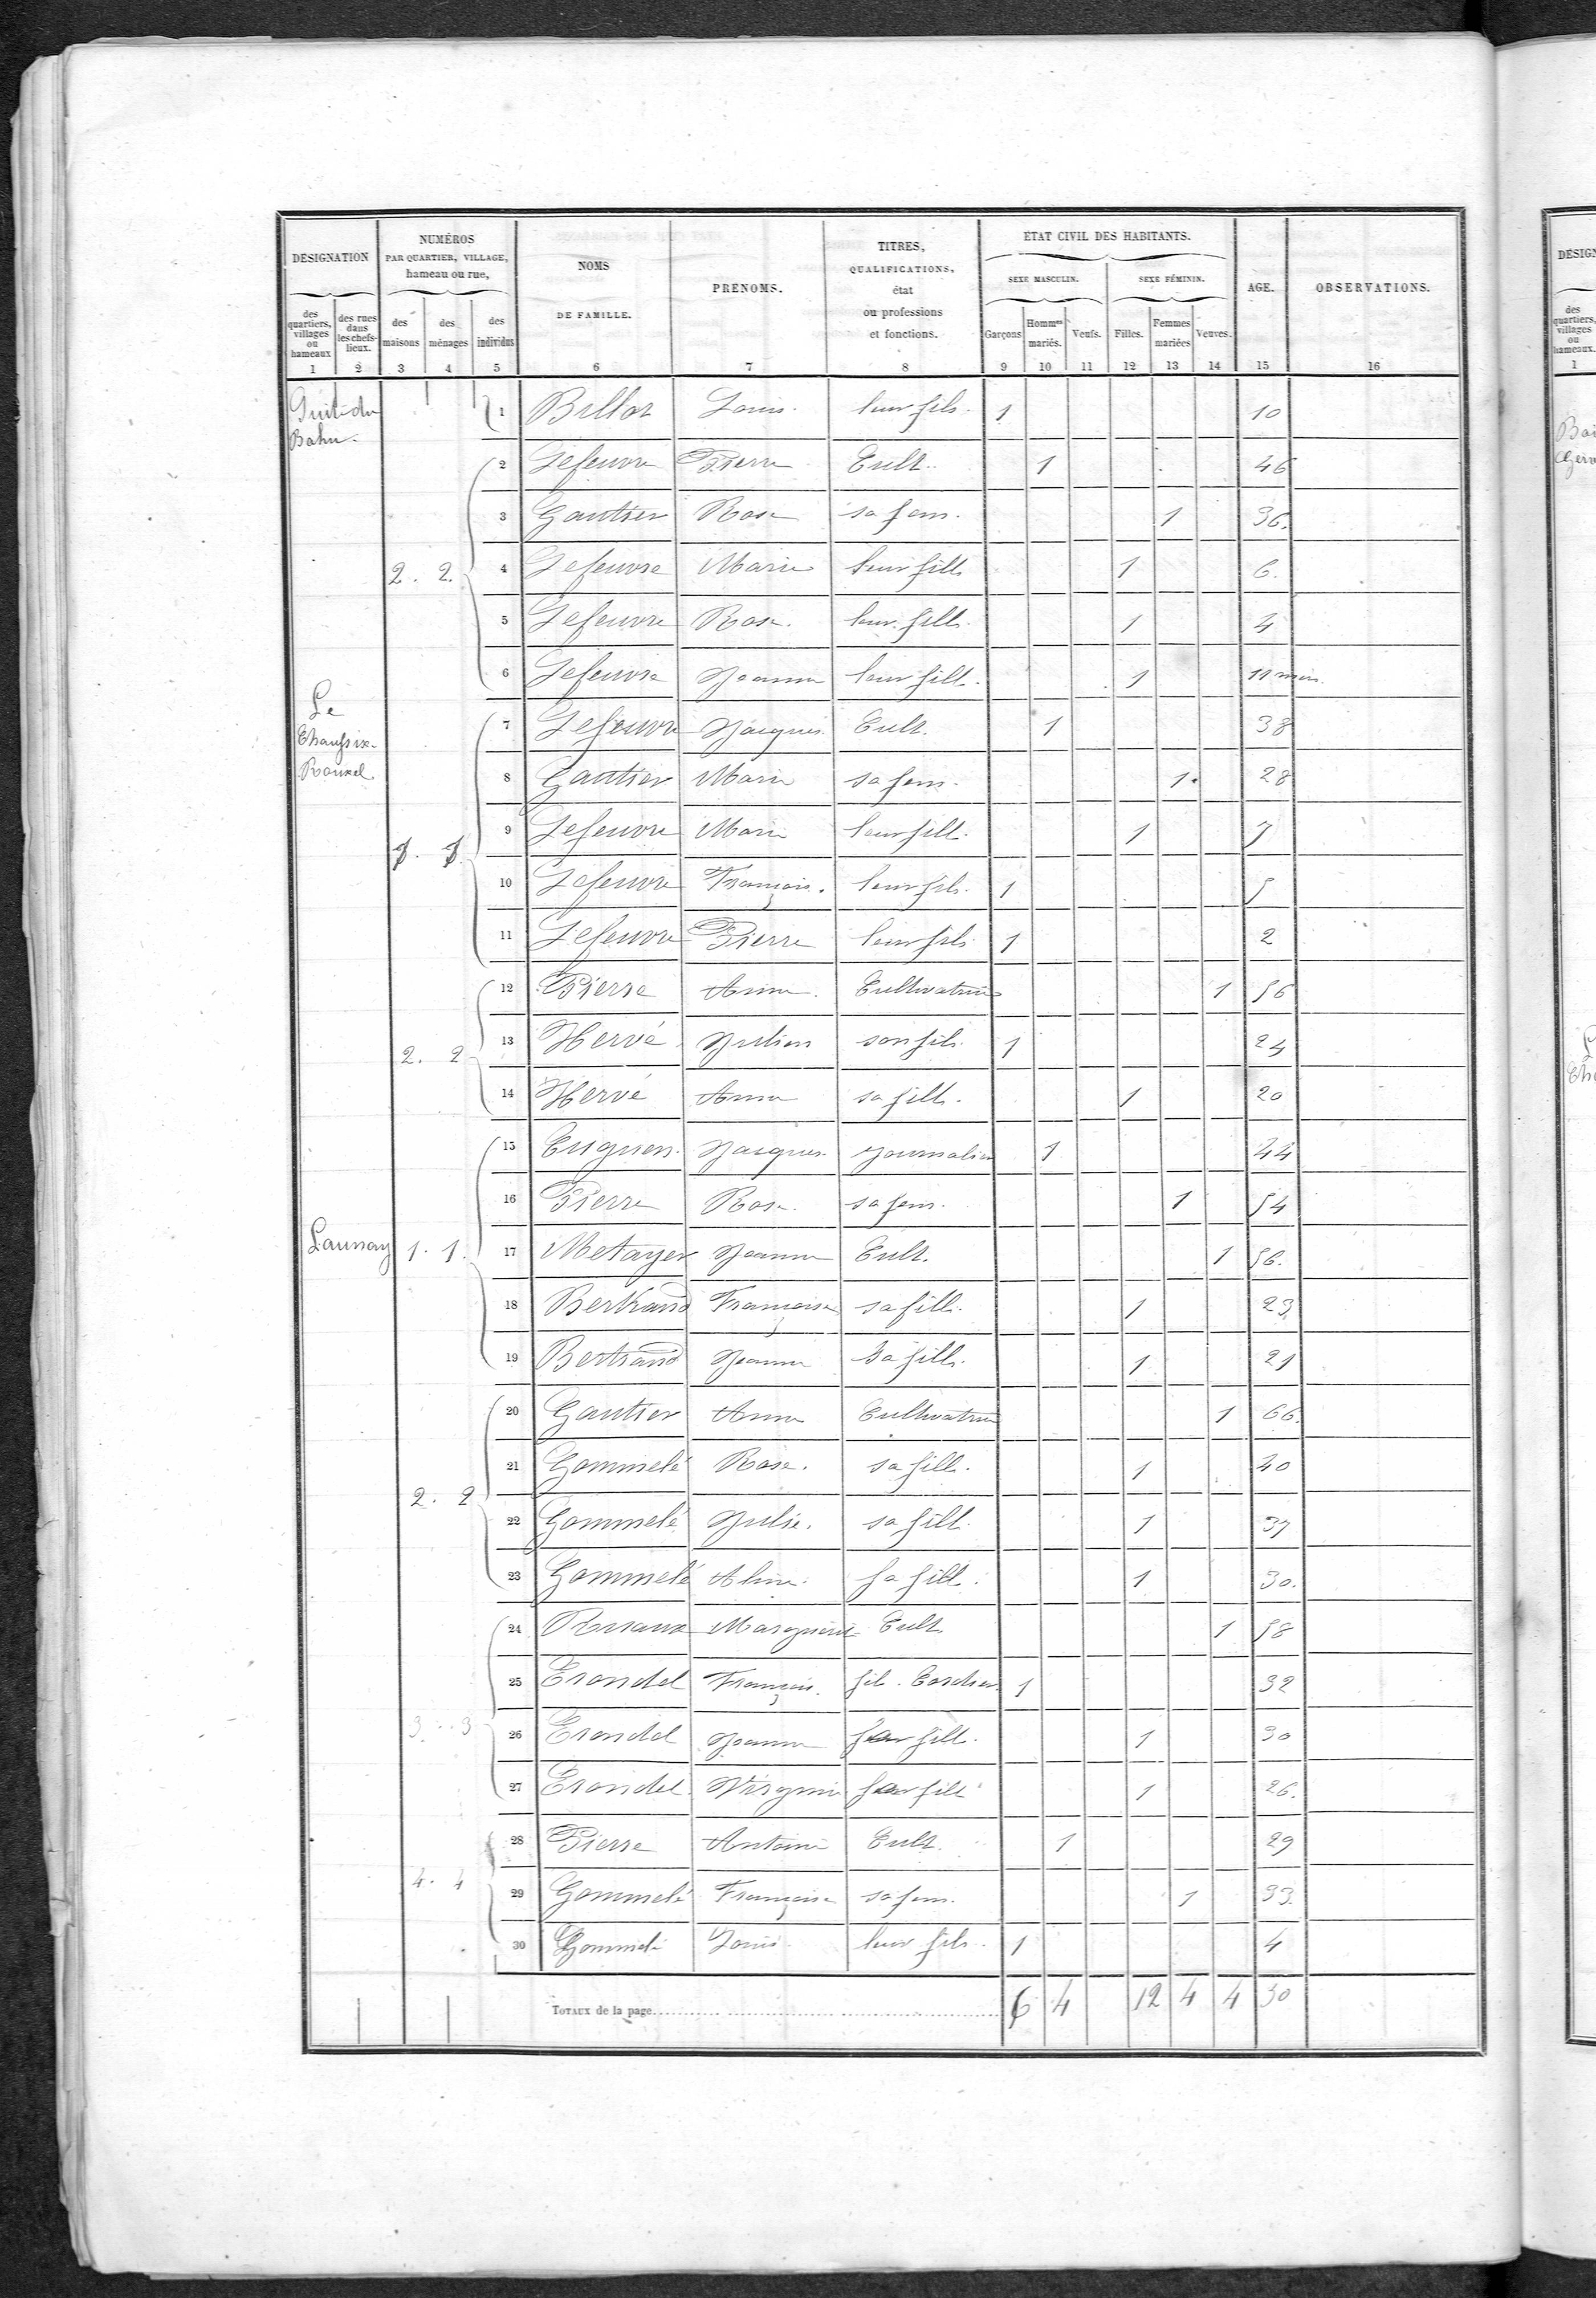 DÉSIGNATION
NUMÉROS PAR QUARTIER, VILLAGE, hameau ou rue,
NOMS DE FAMILLE.
PRÉNOMS.
TITRES, QUALIFICATIONS, état ou professions et fonctions.
ÉTAT CIVIL DES HABITANTS.
SEXE MASCULIN.
SEXE FÉMININ.
AGE.
OBSERVATIONS.
des quartiers, villages ou hameaux
des rues dans les chefs-lieux.
des maisons
des ménages
des individus
Garçons
Hommes mariés.
Veufs.
Filles.
Femmes mariées
Veuves.
1 2 3 4 5 6 7 8 9 10 11 12 13 14 15 16
1 Billot Louis. leur fils. 1 10
2 Lefeuvre Pierre Cult. 1 46
3 Gautier Rose sa fem. 1 36.
2. 2. 4 Lefeuvre Marie leur fille 1 6.
5 Lefeuvre Rose. leur fille. 1 4
6 Lefeuvre Jeanne leur fille. 1 11 mois.
Le
7 Lefeuvre Jacques Cult. 1 38
8 Gautier Marie sa fem. 1. 28
9 Lefeuvre Marie leur fille. 1 7
10 Lefeuvre François. leur fils. 1 5
11 Lefeuvre Pierre leur fils 1 2
12 Pierre Anne. Cultivatrice 1 56
2. 2 13 Hervé Julien son fils. 1 24
14 Hervé Anne sa fille. 1 20
15 Jacques. journalier 1 44
16 Pierre Rose. sa fem. 1 54
Launay 1. 1. 17 Metayer Jeanne Cult. 1 56.
18 Bertrand Françoise sa fille. 1 23
19 Bertrand Jeanne Sa fille. 1 21
20 Gautier Anne Cultivatrice 1 66.
21 Gommelé Rose. sa fille. 1 40
2. 2 22 Gommelé Julie. sa fille. 1 37
23 Gommelé sa fille. 1 30.
24 Marguerite Cult. 1 58
25 Erondel François. fils. Cordier 1 32
3. 3 26 Erondel Jeanne sa fille. 1 30
27 Erondel Virginie sa fille 1 26.
28 Pierre Antoine Cult. 1 29
4. 4 29 Gommelé Françoise sa fem. 1 33.
30 Gommelé Louis leur fils. 1 4
TOTAUX de la page 6 4 12 4 4 30
DÉSIGN
des quartiers, villages ou hameaux.
1